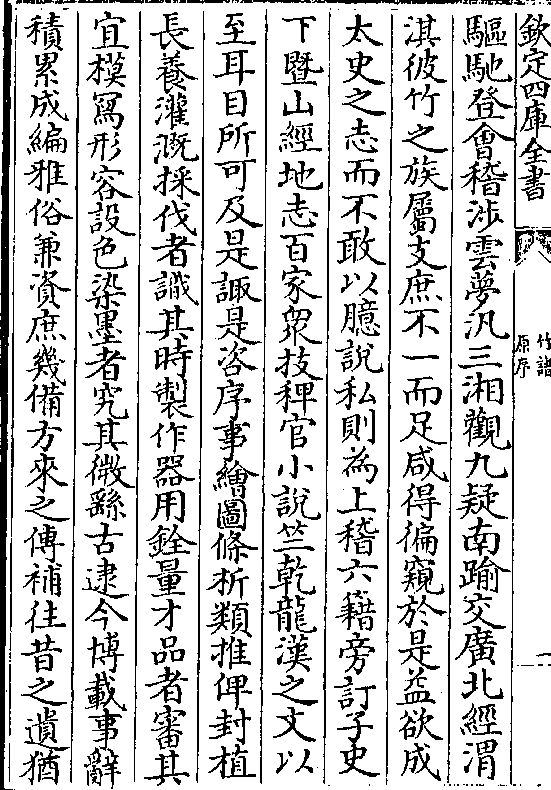 欽定四庫全書
竹譜
原序
一
驅馳登㑹稽涉雲夢汎三湘觀九疑南踰交廣北經渭
淇彼竹之族屬支庶不一而足咸得徧窺於是益欲成
太史之志而不敢以臆說私則為上稽六籍旁訂子史
下暨山經地志百家衆技稗官小說竺乾龍漢之文以
至耳目所可及是諏是咨序事繪圖條析類推俾封植
長養灌溉採伐者識其時製作器用銓量才品者審其
宜模冩形容設色染墨者究其微繇古逮今博載事辭
積累成編雅俗兼資庶幾備方來之傳補往昔之遺猶